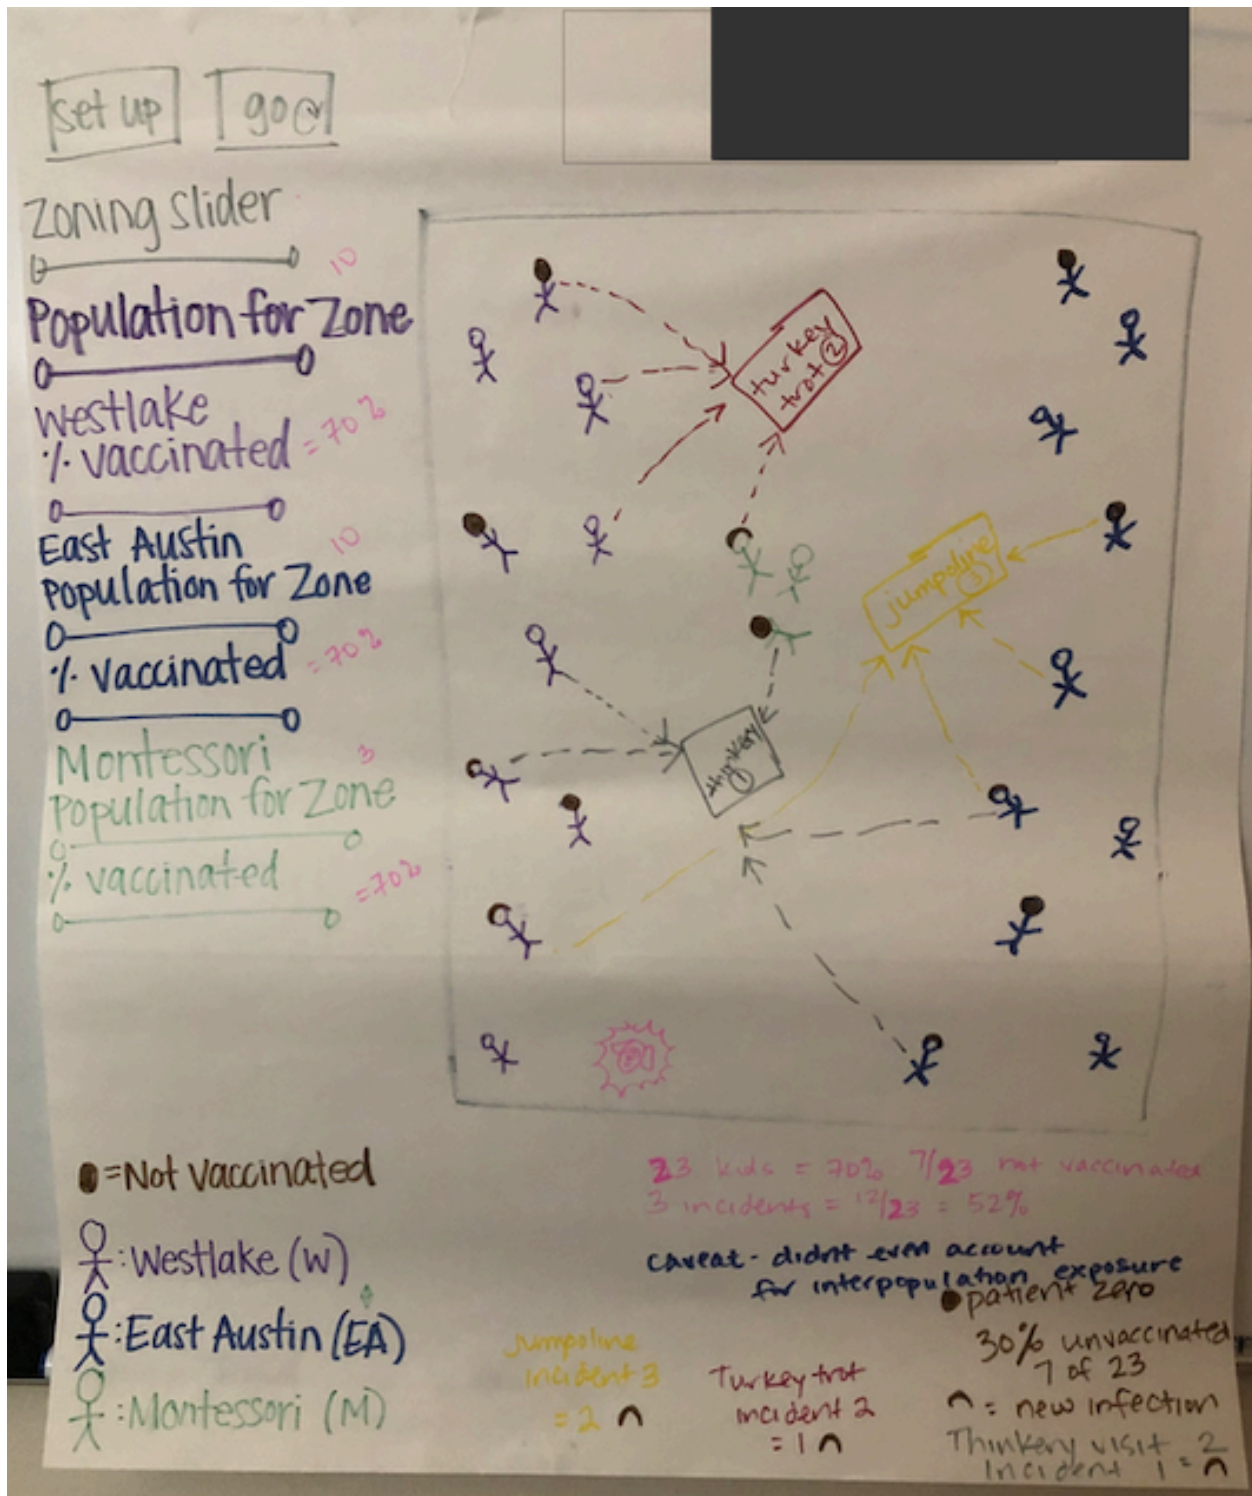 set up
go
Zoning Slider
10
Population for Zone
Westlake
% vaccinated = 70%
East Austin
10
Population for Zone
% vaccinated = 70%
Montessori
3
Population for Zone
% vaccinated
= 70%
turkey
trot ②
jumpoline
③
thinkery
①
= Not vaccinated
: Westlake (W)
: East Austin (EA)
: Montessori (M)
23 kids = 70% 7/23 not vaccinated
3 incidents = 12/23 = 52%
caveat - didn't even account
for interpopulation exposure
patient zero
30% unvaccinated
7 of 23
= new infection
Thinkery visit
Incident 1 = 2
Jumpoline
Incident 3
= 2
Turkey trot
incident 2
= 1